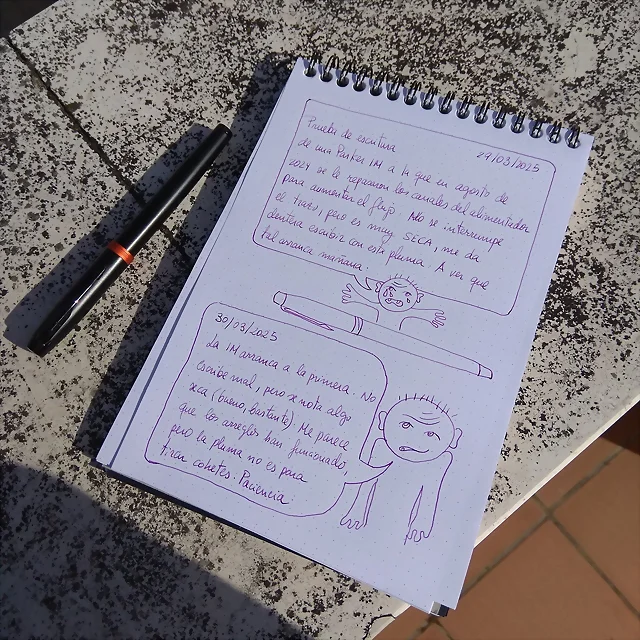 Prueba de escritura 29/03/2025
de una Parker IM a la que en agosto de
2024 se le repasaron los canales del alimentador
para aumentar el flujo. No se interrumpe
el trazo, pero es muy SECA, me da
dentera escribir con esta pluma. A ver qué
tal arranca mañana.
30/03/2025
La IM arranca a la primera. No
escribe mal, pero se nota algo
seca (bueno, bastante) Me parece
que los arreglos han funcionado,
pero la pluma no es para
tirar cohetes. Paciencia